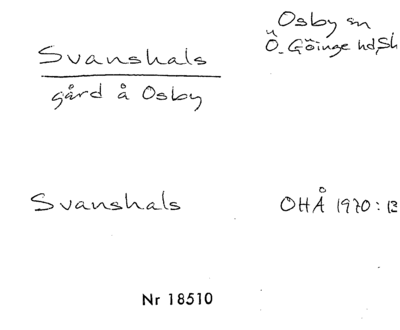 Osby sn
Svanshals
Ö. Göinge hd, Sk
gård å Osby
Svanshals
OHÅ 1970: 13
Nr 18510